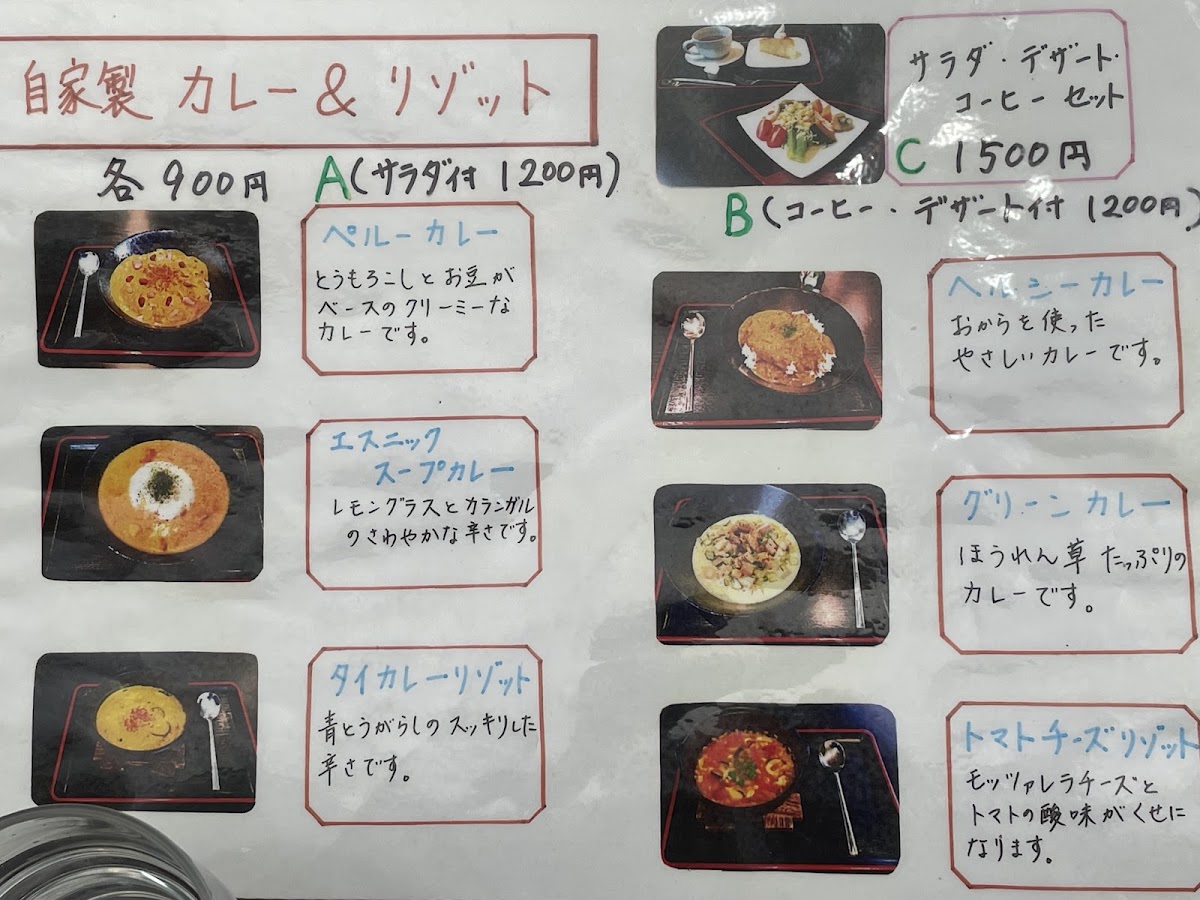 自家製 カレー & リゾット
各 900円 A(サラダ付 1200円)
サラダ・デザート・
コーヒー セット
C 1500円
B(コーヒー・デザート付 1200円)
ペルーカレー
とうもろこしとお豆が
ベースのクリーミーな
カレーです。
ヘルシーカレー
おからを使った
やさしいカレーです。
エスニック
スープカレー
レモングラスとカランガル
のさわやかな辛さです。
グリーンカレー
ほうれん草たっぷりの
カレーです。
タイカレーリゾット
青とうがらしのスッキリした
辛さです。
トマトチーズリゾット
モッツァレラチーズと
トマトの酸味がくせに
なります。